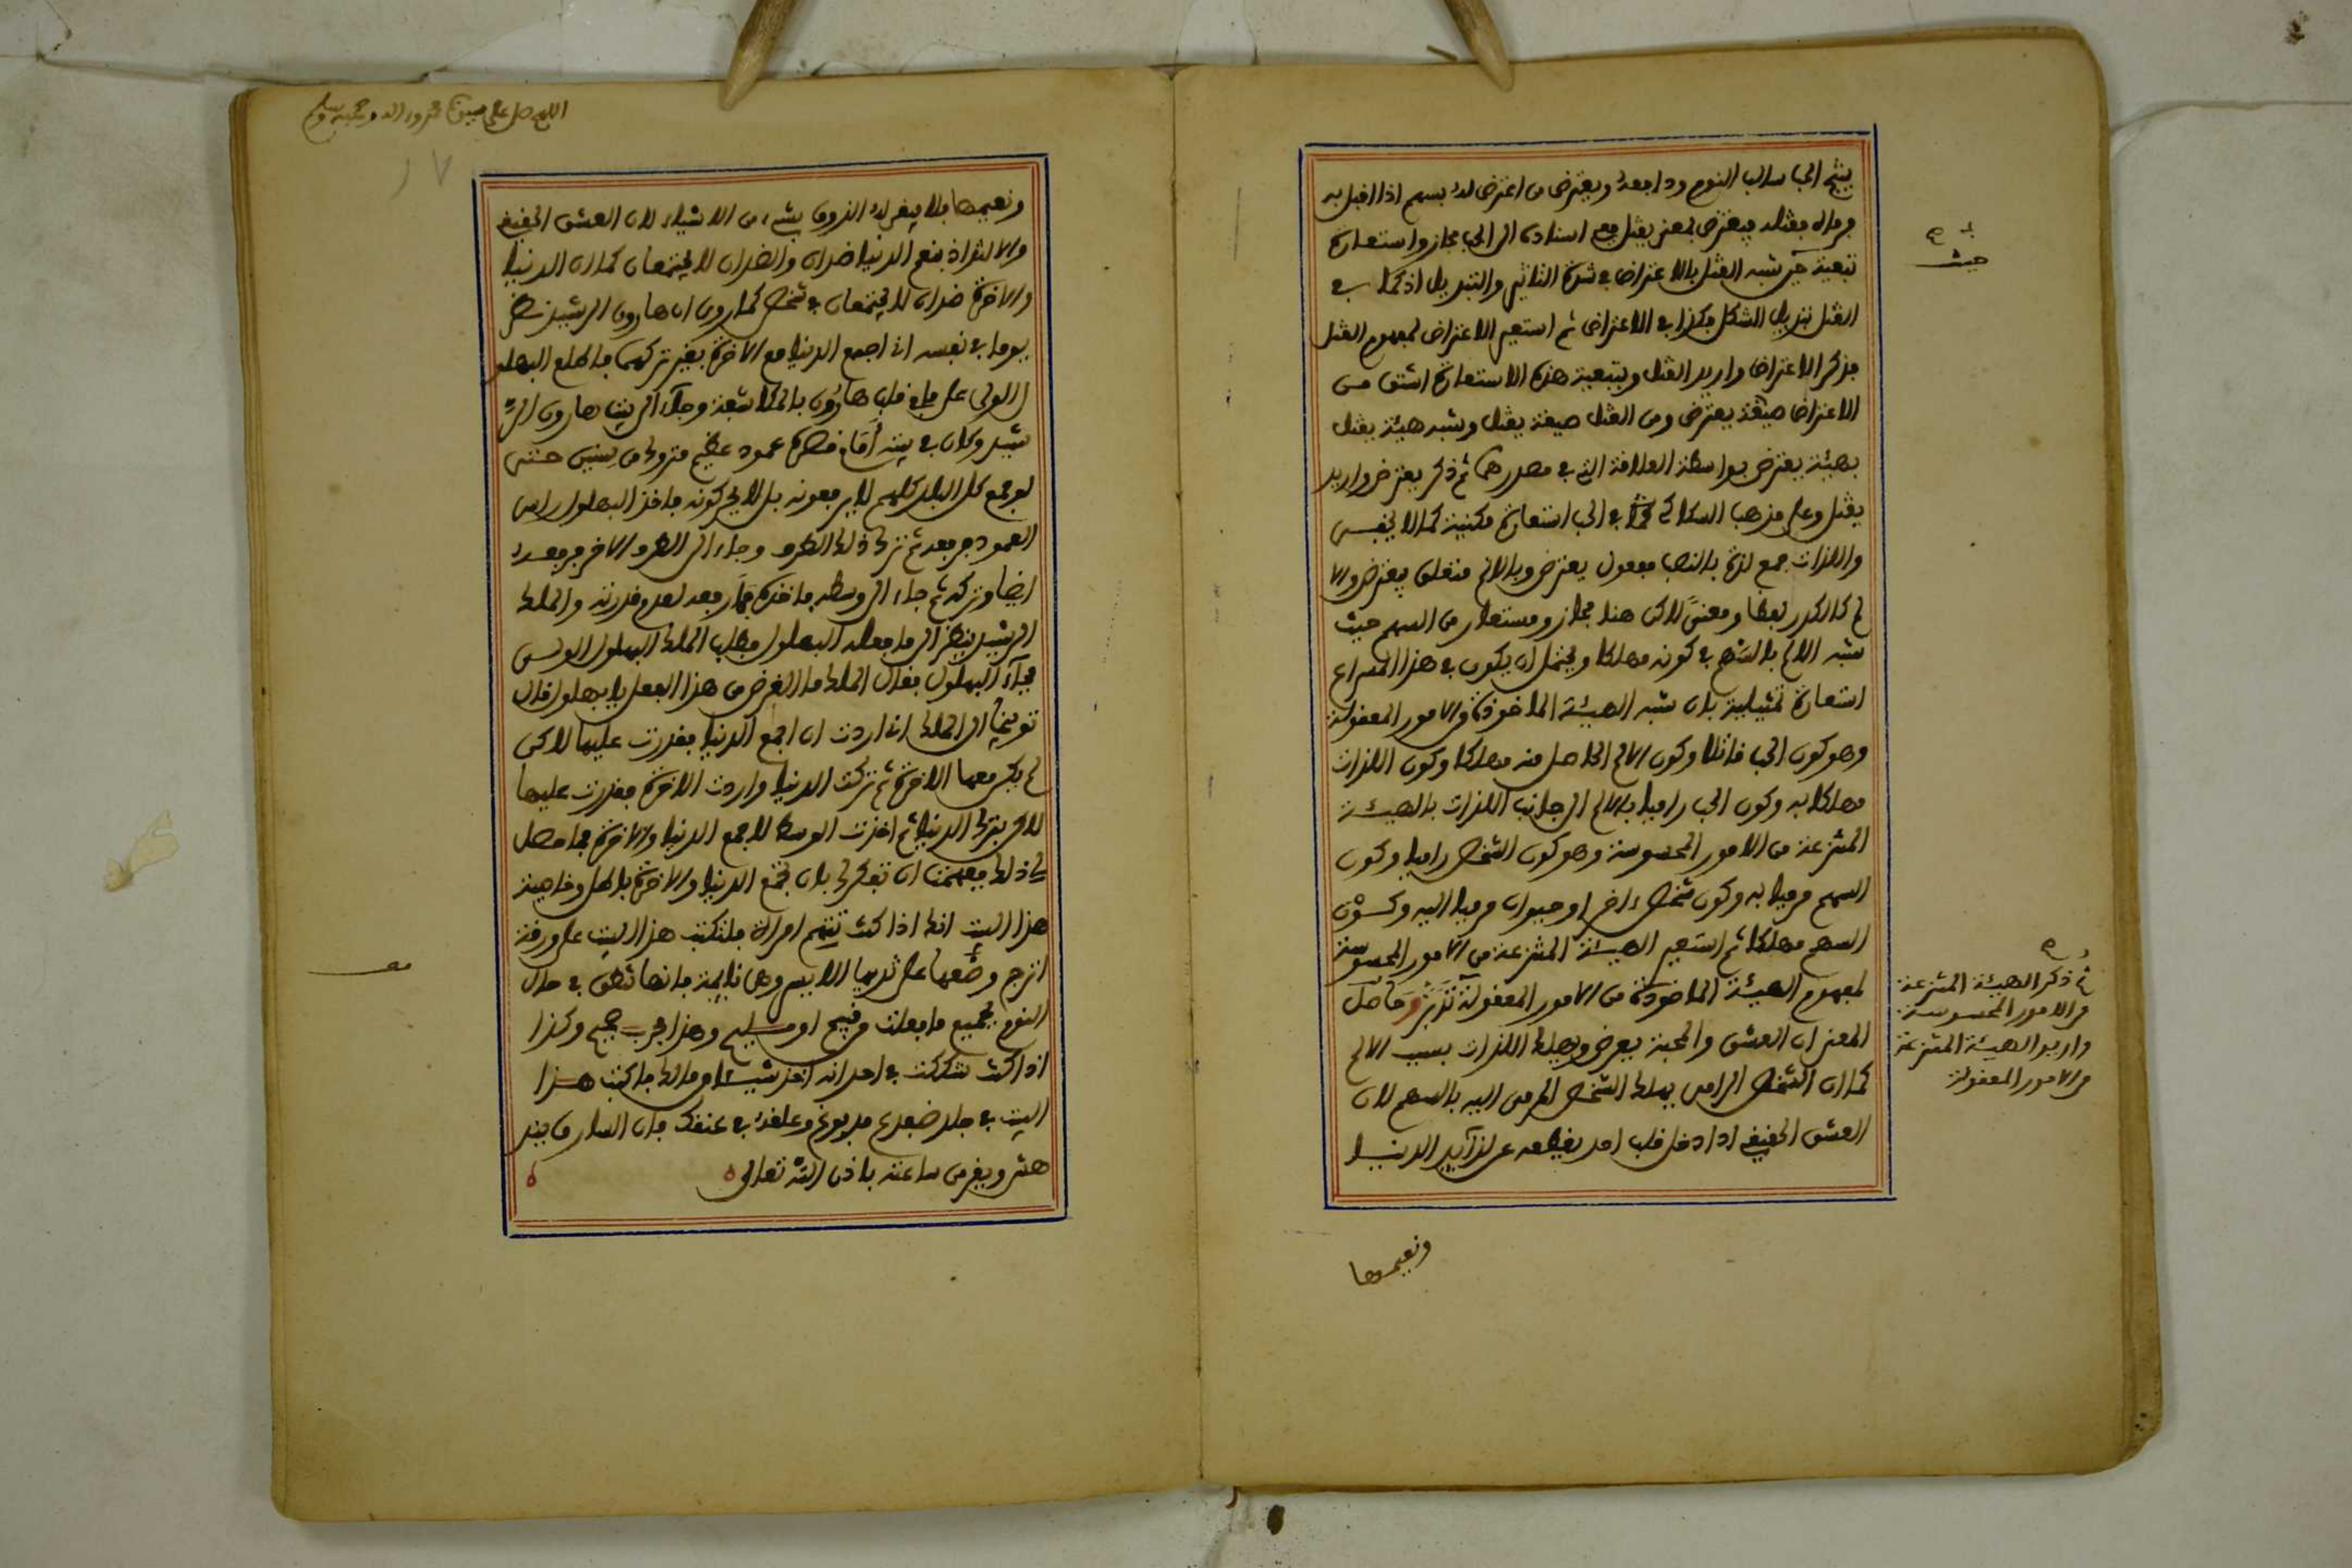 ينتج الحب سالب النوم ودافعه ويعترض من اعترض له بسهم اذا اقبل به
فرماه فقتله فيعترض بمعنى يقتل مع اسناده الى الحب مجاز واستعارة
تبعية حيث شبه القتل بالاعتراض في شدة التاثير والتبديل اذ كما في
القتل تبديل الشكل فكذا في الاعتراض ثم استعير الاعتراض لمفهوم القتل
فذكر الاعتراض واريد القتل وبتبعية هذه الاستعارة اشتق من
الاعتراض صيغة يعترض ومن القتل صيغة يقتل وشبه هيئة يقتل
بهيئة يعترض بواسطة العلاقة التي في مصدرهما ثم ذكر يعترض واريد
يقتل وعلى مذهب السكاكي في الحب استعارة مكنية كما لا يخفى
واللذات جمع لذة بالنصب مفعول يعترض وبالالم متعلق بيعترض والا
لم كالكدر لفظا ومعنى لاكن هنا مجاز ومستعار من السهم حيث
شبه الالم بالسهم في كونه مهلكا ويحتمل ان يكون في هذا المصراع
استعارة تمثيلية بان شبه الهيئة الماخوذة من الامور المعقولة
وهو كون الحب قاتلا وكون الالم الحاصل منه مهلكا وكون اللذات
مهلكا به وكون الحب راميا بالالم الى جانب اللذات بالهيئة
المنتزعة من الامور المحسوسة وهو كون الشخص راميا وكون
السهم مرميا به وكون شخص اخر او حيوان مرميا اليه وكون
السهم مهلكا ثم استعير الهيئة المنتزعة من الامور المحسوسة
لمفهوم الهيئة الماخوذة من الامور المعقولة تدبر وحاصل
المعنى ان العشق والمحبة يعرض ويهلك اللذات بسبب الالم
كما ان الشخص الرامي يهلك الشخص المرمى اليه بالسهم لان
العشق الحقيقي اذا دخل قلب احد يقطعه عن لذآيذ الدنيا
ونعيمها
حيث
ثم ذكر الهيئة المنتزعة
من الامور المحسوسة
واريد الهيئة المنتزعة
من الامور المعقولة
اللهم صل على سيدنا محمد واله وصحبه وسلم
١٧
ونعيمها فلا يبقى له الذوق بشيء من الاشياء لان العشق الحقيقي
والالتذاذ بنعم الدنيا ضدان والضدان لا يجتمعان كما ان الدنيا
والاخرة ضدان لا يجتمعان في شخص كما روى ان هارون الرشيد خطر
يوما في نفسه اني اجمع الدنيا مع الاخرة بغير تركهما فاطلع البهلو
ل الولى على ما في قلب هارون بالمكاشفة وجآء الى بيت هارون الر
شيد وكان في بيته عمود عظيم متروك من سنين حتى
لو جمع كل البلد كلهم لا يرفعونه بل لا يحركونه فاخذ البهلول راس
العمود فرفعه ثم ترك ذلك الطرف وجاء الى الطرف الاخر فرفعه
ايضا وتركه ثم جاء الى وسطه فاخذه فما رفعه لعدم قدرته والملك
الرشيد ينظر الى ما فعله البهلول فطلب الملك البهلول الولى
فجآء البهلول فقال الملك ما الغرض من هذا الفعل يا بهلول قال
توبيخا الى الملك اني اردت ان اجمع الدنيا فقدرت عليها لاكن
لم يكن معها الاخرة ثم تركت الدنيا واردت الاخرة فقدرت عليها
لاكن بترك الدنيا ثم اخذت الوسط لاجمع الدنيا والاخرة فما حصل
لي ذلك ففهمت ان تفكرك بان تجمع الدنيا والاخرة باطل وخاصية
هذا البيت انك اذا كنت تتهم امراة فلتكتب هذا البيت على ورقة
اترج وضعها على ثديها الايسر وهي نايمة فانها تنطق في حال
النوم بجميع ما فعلت من قبيح او مليح وهذا مجرب صحيح وكذا
اذا كنت شككت في احد انه اخذ شيئا من مالك فاكتب هذا
البيت في جلد ضفدع مدبوغ وعلقه في عنقك فان السارق
ويقر من ساعته باذن الله تعالى